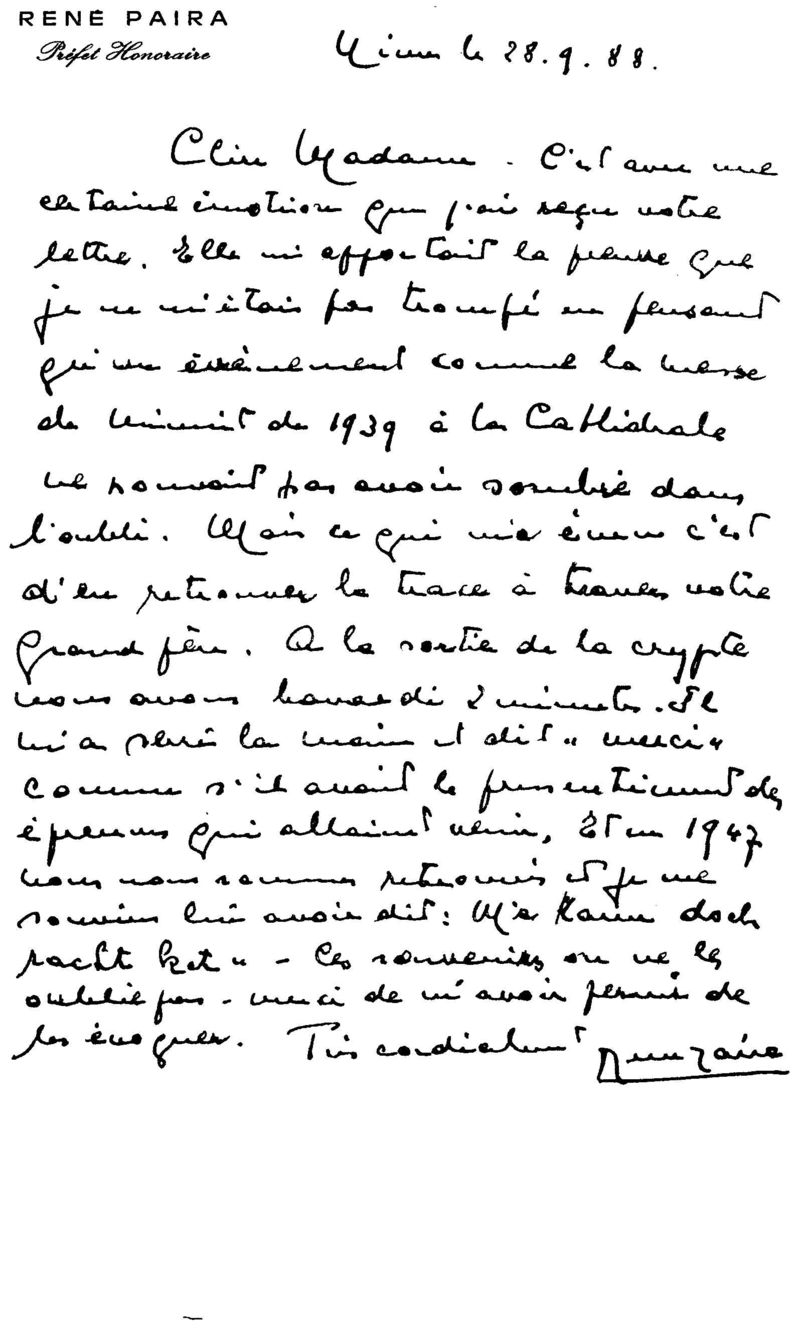 RENÉ PAIRA
Préfet Honoraire
le 28.9.88.
Chère Madame. C'est avec une
certaine émotion que j'ai reçu votre
lettre. Elle m'apportait la preuve que
je ne m'étais pas trompé en pensant
qu'un événement comme la messe
de minuit de 1939 à la Cathédrale
ne pouvait pas avoir sombré dans
l'oubli. Mais ce qui m'a ému c'est
d'en retrouver la trace à travers votre
grand père. A la sortie de la crypte
nous avons bavardé 2 minutes. Il
m'a serré la main et dit "merci"
comme s'il avait le pressentiment des
épreuves qui allaient venir, Et en 1947
nous nous sommes retrouvés et je me
souviens lui avoir dit: M'r doch
racht " - Ces souvenirs on ne les
oublie pas - merci de m'avoir permis de
les évoquer. Très cordialement René Paira